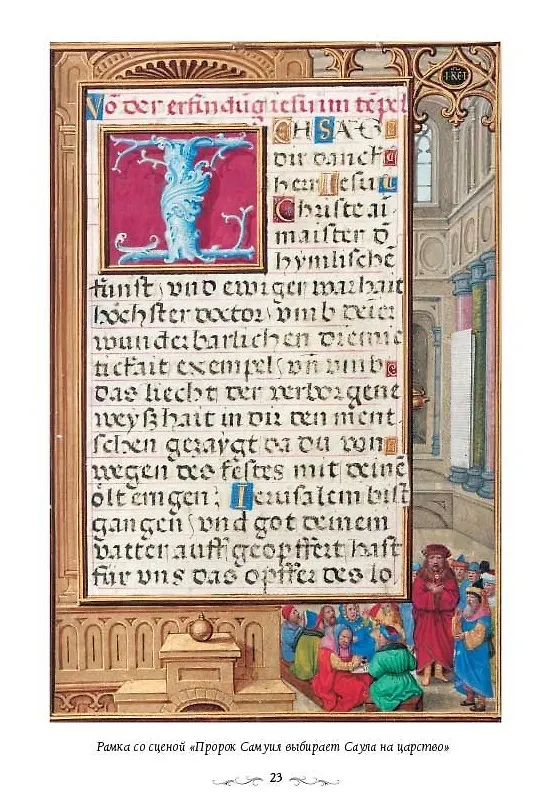 Võ der erfindũg iesu im tẽpel
ICH SAG
dir danck
herr Iesu
Christe ai
maister d̃
hymlischẽ
kunst / vnd ewiger warhait
höchster doctor / vmb deier
wunderbarlichen diemie
tickait exempel / vñ vmb
das liecht der verborgenẽ
weyßhait in dir den ment
schen gezaygt da du von
wegen des festes mit deinẽ
öltern gen Ierusalem bist
gangen / vnd got deinem
vatter auff geopffert hast
für vns das opffer des lo
Рамка со сценой «Пророк Самуил выбирает Саула на царство»
23